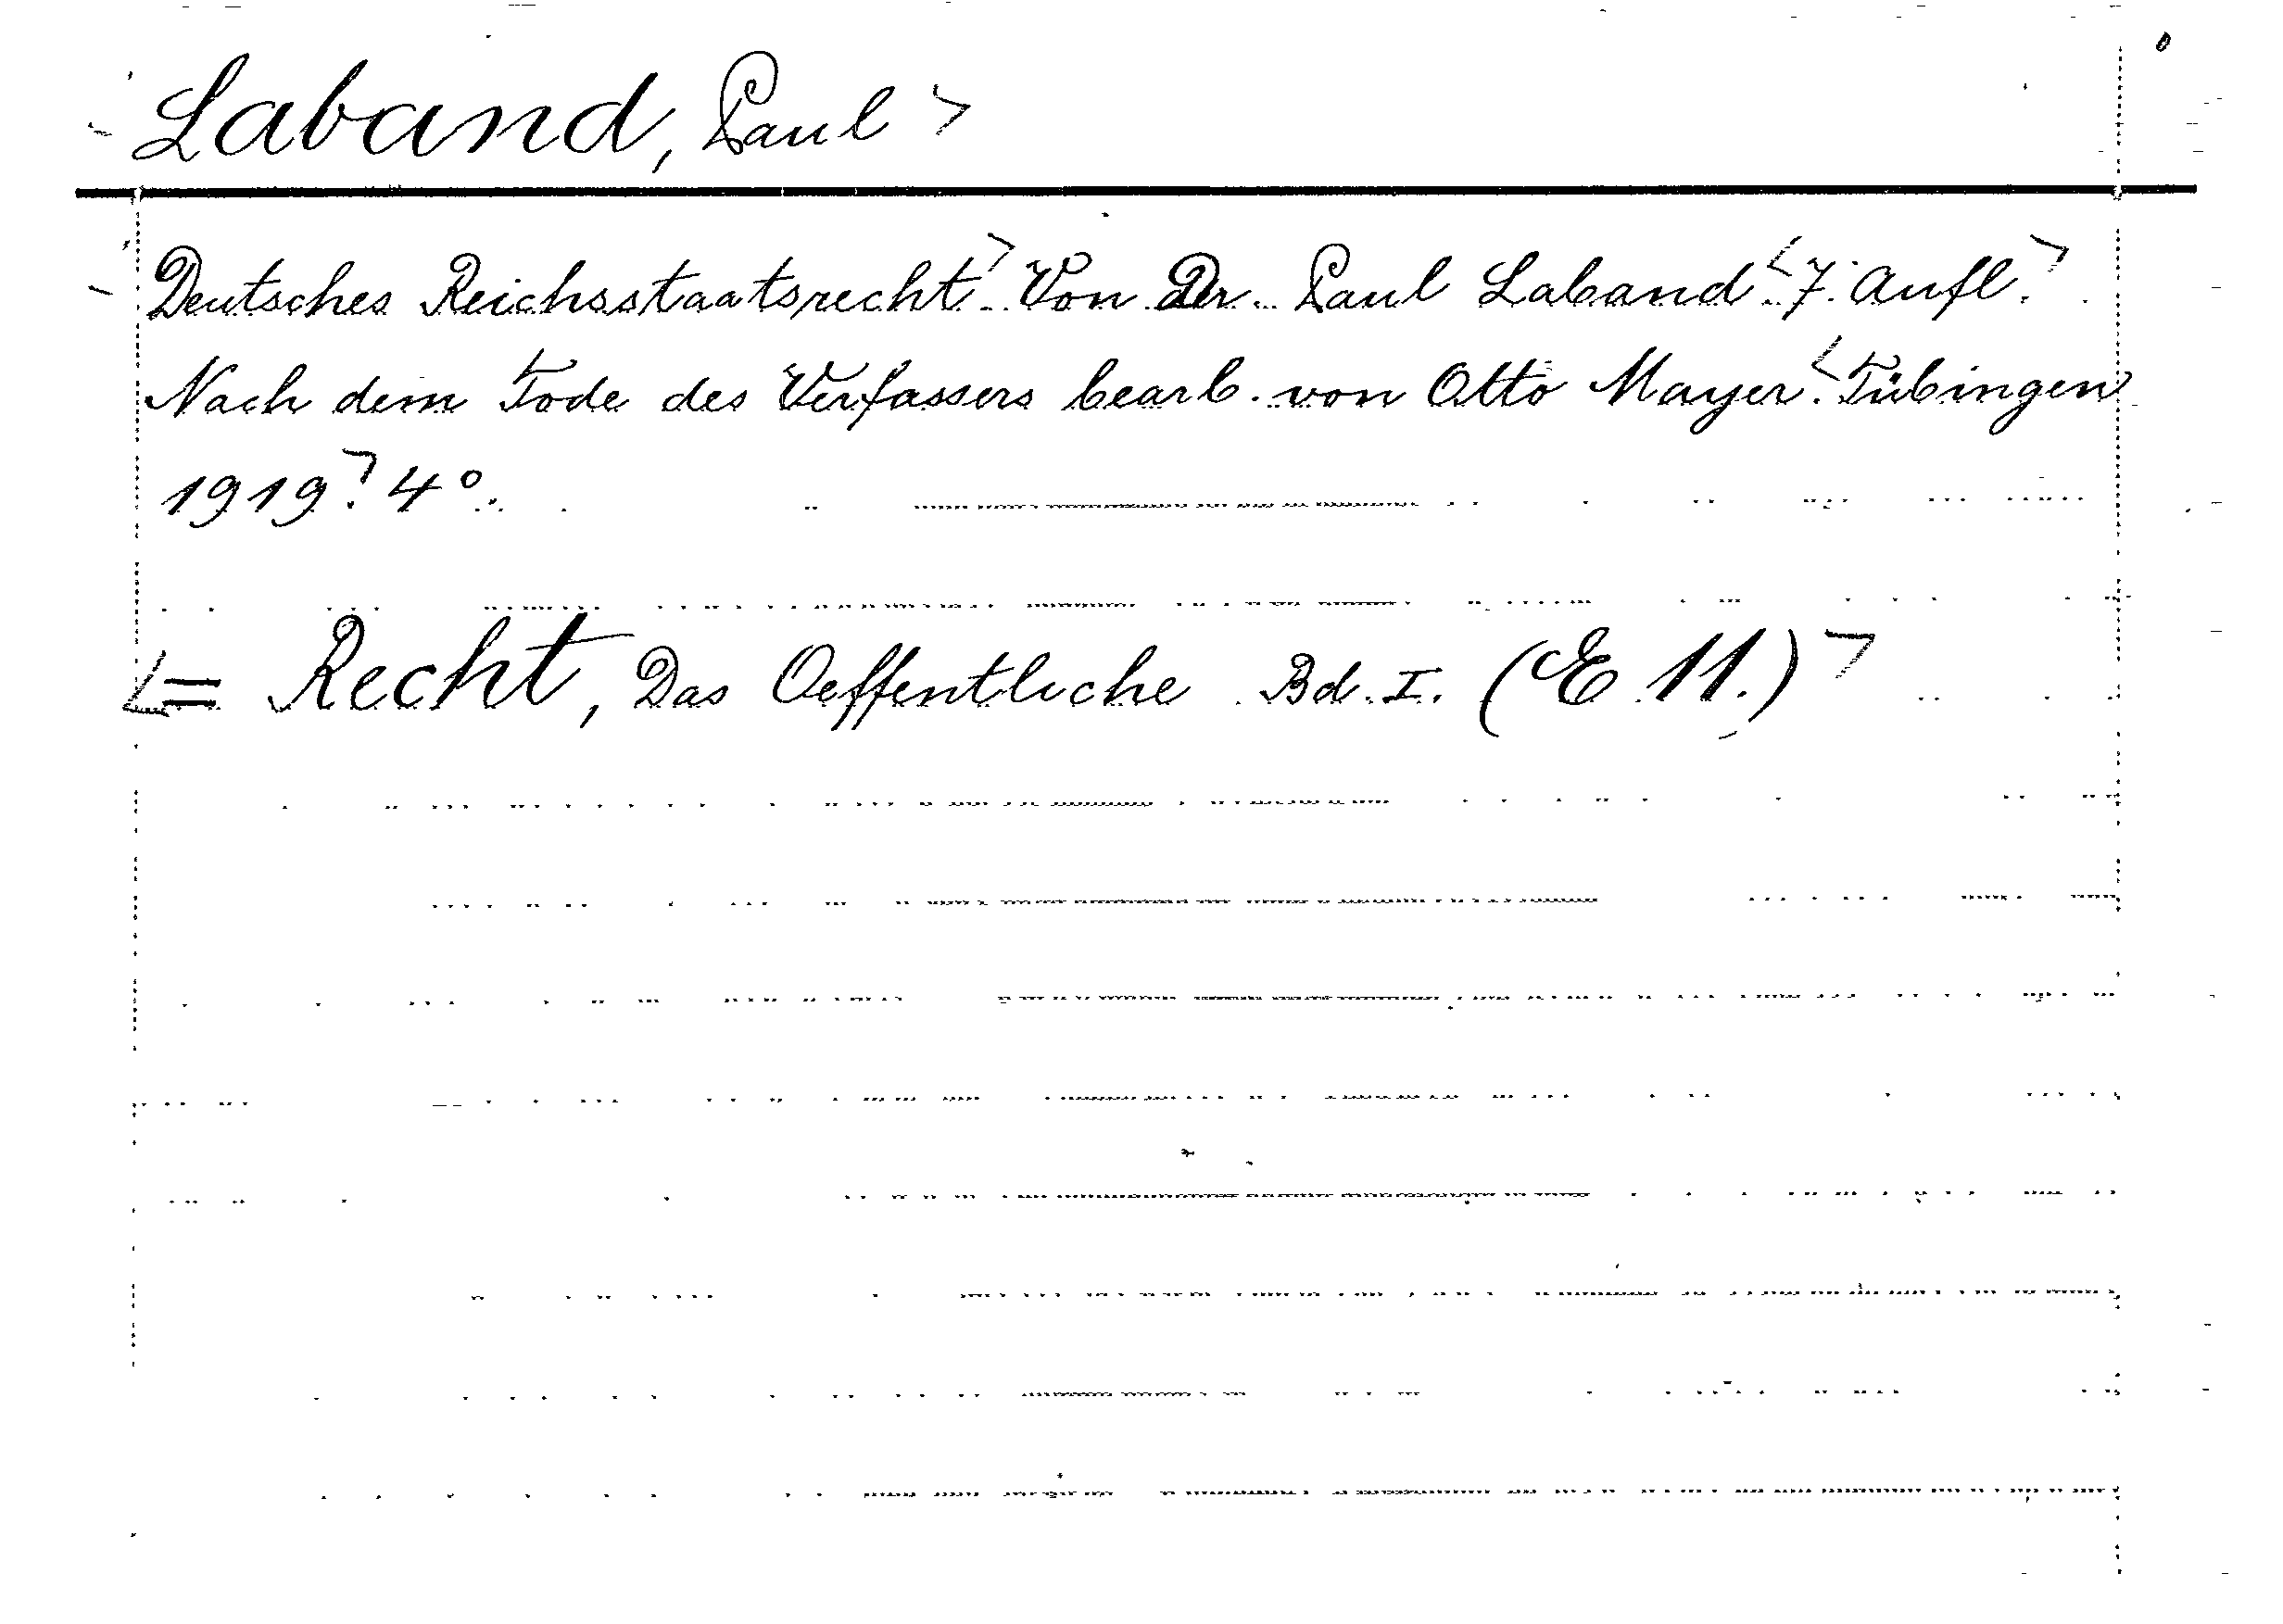 Laband, Paul
Deutsches Reichsstaatsrecht. Von Dr. Paul Laband. 7. Aufl.
Nach dem Tode des Verfassers bearb. von Otto Mayer. Tübingen
1919. 4°.
= Recht, Das Oeffentliche Bd. I. (E 11.)